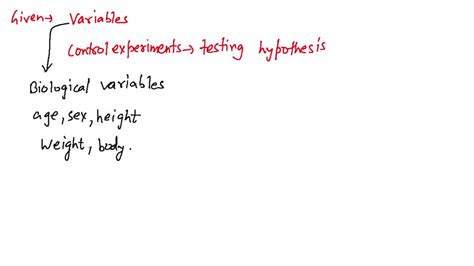 Given → Variables
Control experiments → testing hypothesis
Biological variables
age, sex, height
Weight, body.